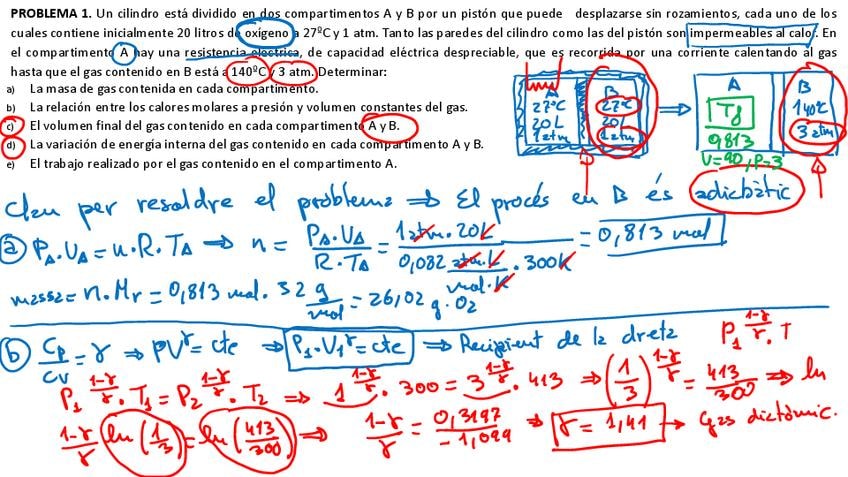 PROBLEMA 1. Un cilindro está dividido en dos compartimentos A y B por un pistón que puede desplazarse sin rozamientos, cada uno de los
cuales contiene inicialmente 20 litros de oxígeno a 27ºC y 1 atm. Tanto las paredes del cilindro como las del pistón son impermeables al calor. En
el compartimento A hay una resistencia eléctrica, de capacidad eléctrica despreciable, que es recorrida por una corriente calentando al gas
hasta que el gas contenido en B está a 140ºC y 3 atm. Determinar:
a) La masa de gas contenida en cada compartimento.
b) La relación entre los calores molares a presión y volumen constantes del gas.
c) El volumen final del gas contenido en cada compartimento A y B.
d) La variación de energía interna del gas contenido en cada compartimento A y B.
e) El trabajo realizado por el gas contenido en el compartimento A.
A B
27ºC 27ºC
20L 20L
1 atm 1 atm
⇒
A B
Tf 140ºC
0,813 3 atm
V=40, P=3
Clau per resoldre el problema ⇒ El procés en B és adiabàtic
a) PA·VA = n·R·TA ⇒ n = PA·VA / R·TA = 1 atm·20L / 0,082 atm·L/mol·K · 300K = 0,813 mol
massa = n·Mr = 0,813 mol · 32 g/mol = 26,02 g O2
b) CP/CV = γ ⇒ PV^γ = cte ⇒ P1·V1^γ = cte ⇒ Recipient de la dreta P1^(1-γ/γ)·T
P1^(1-γ/γ)·T1 = P2^(1-γ/γ)·T2 ⇒ 1^(1-γ/γ)·300 = 3^(1-γ/γ)·413 ⇒ (1/3)^(1-γ/γ) = 413/300 ⇒ ln
1-γ/γ ln(1/3) = ln(413/300) ⇒ 1-γ/γ = 0,3197/-1,099 ⇒ γ = 1,41 → Gas diatòmic.